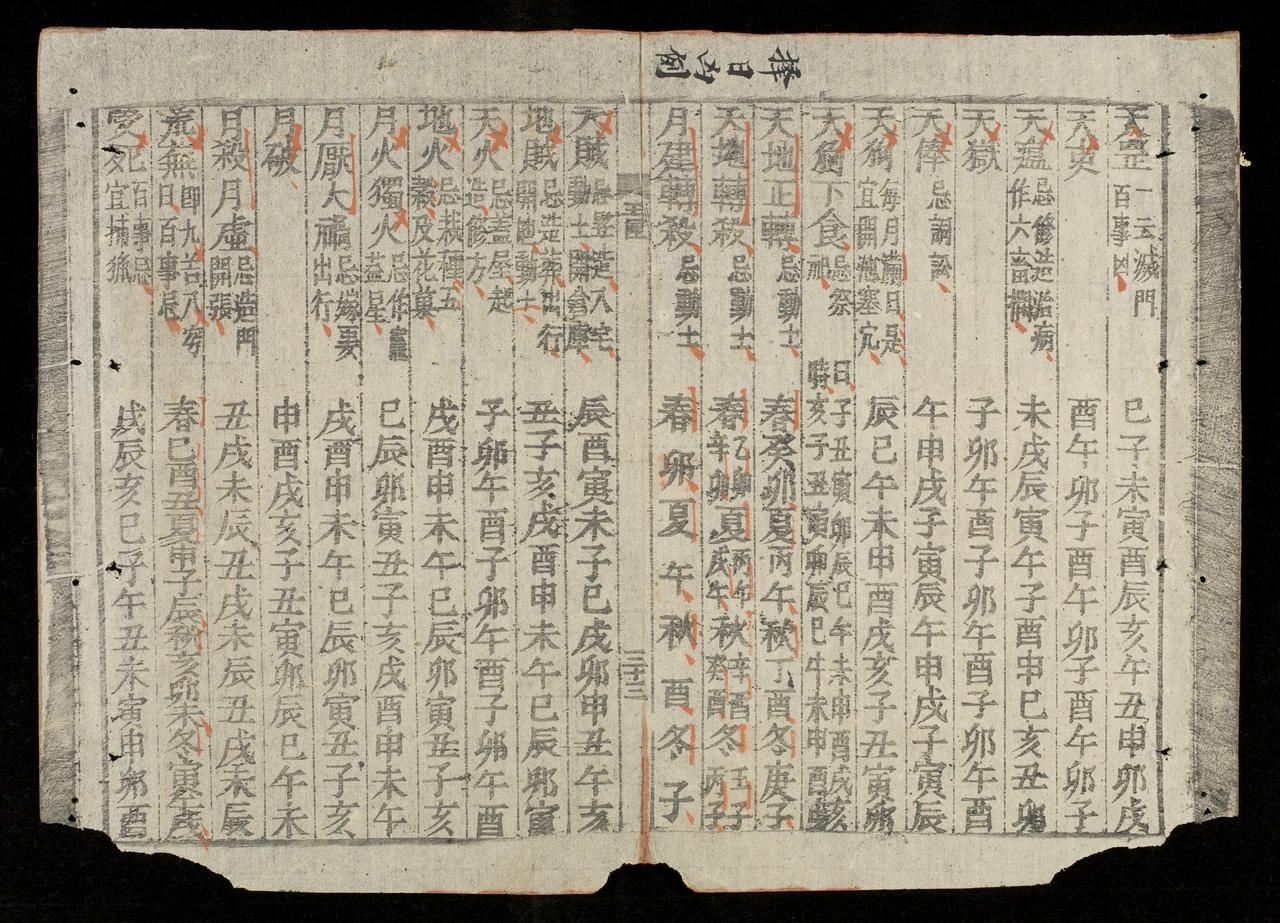 擇日凶例
天罡 一云滅門百事凶 巳子未寅酉辰亥午丑申卯戌
天吏 酉午卯子酉午卯子酉午卯子
天瘟 忌修造治病作六畜欄 未戌辰寅午子酉申巳亥丑卯
天獄 子卯午酉子卯午酉子卯午酉
天棒 忌詞訟 午申戌子寅辰午申戌子寅辰
天狗 每月滿日是宜開池塞穴 辰巳午未申酉戌亥子丑寅卯
天狗下食 忌祭祀 日子丑寅卯辰巳午未申酉戌亥
時亥子丑寅卯辰巳午未申酉戌
天地正轉 忌動土 春癸卯夏丙午秋丁酉冬庚子
天地轉殺 忌動土 春乙卯辛卯夏丙午戊午秋辛酉癸酉冬壬子丙子
月建轉殺 忌動土 春卯夏午秋酉冬子
三十三
天賊 忌豎造入宅動土開倉庫 辰酉寅未子巳戌卯申丑午亥
地賊 忌造葬出行開池動土 丑子亥戌酉申未午巳辰卯寅
天火 忌蓋屋起造修方 子卯午酉子卯午酉子卯午酉
地火 忌栽種五穀及花菓 戌酉申未午巳辰卯寅丑子亥
月火獨火 忌作竈蓋屋 巳辰卯寅丑子亥戌酉申未午
月厭大禍 忌嫁娶出行 戌酉申未午巳辰卯寅丑子亥
月破 申酉戌亥子丑寅卯辰巳午未
月殺月虛 忌造門開張 丑戌未辰丑戌未辰丑戌未辰
荒蕪 即九苦八窮日百事忌 春巳酉丑夏申子辰秋亥卯未冬寅午戌
受死 百事忌宜捕獵 戌辰亥巳子午丑未寅申卯酉